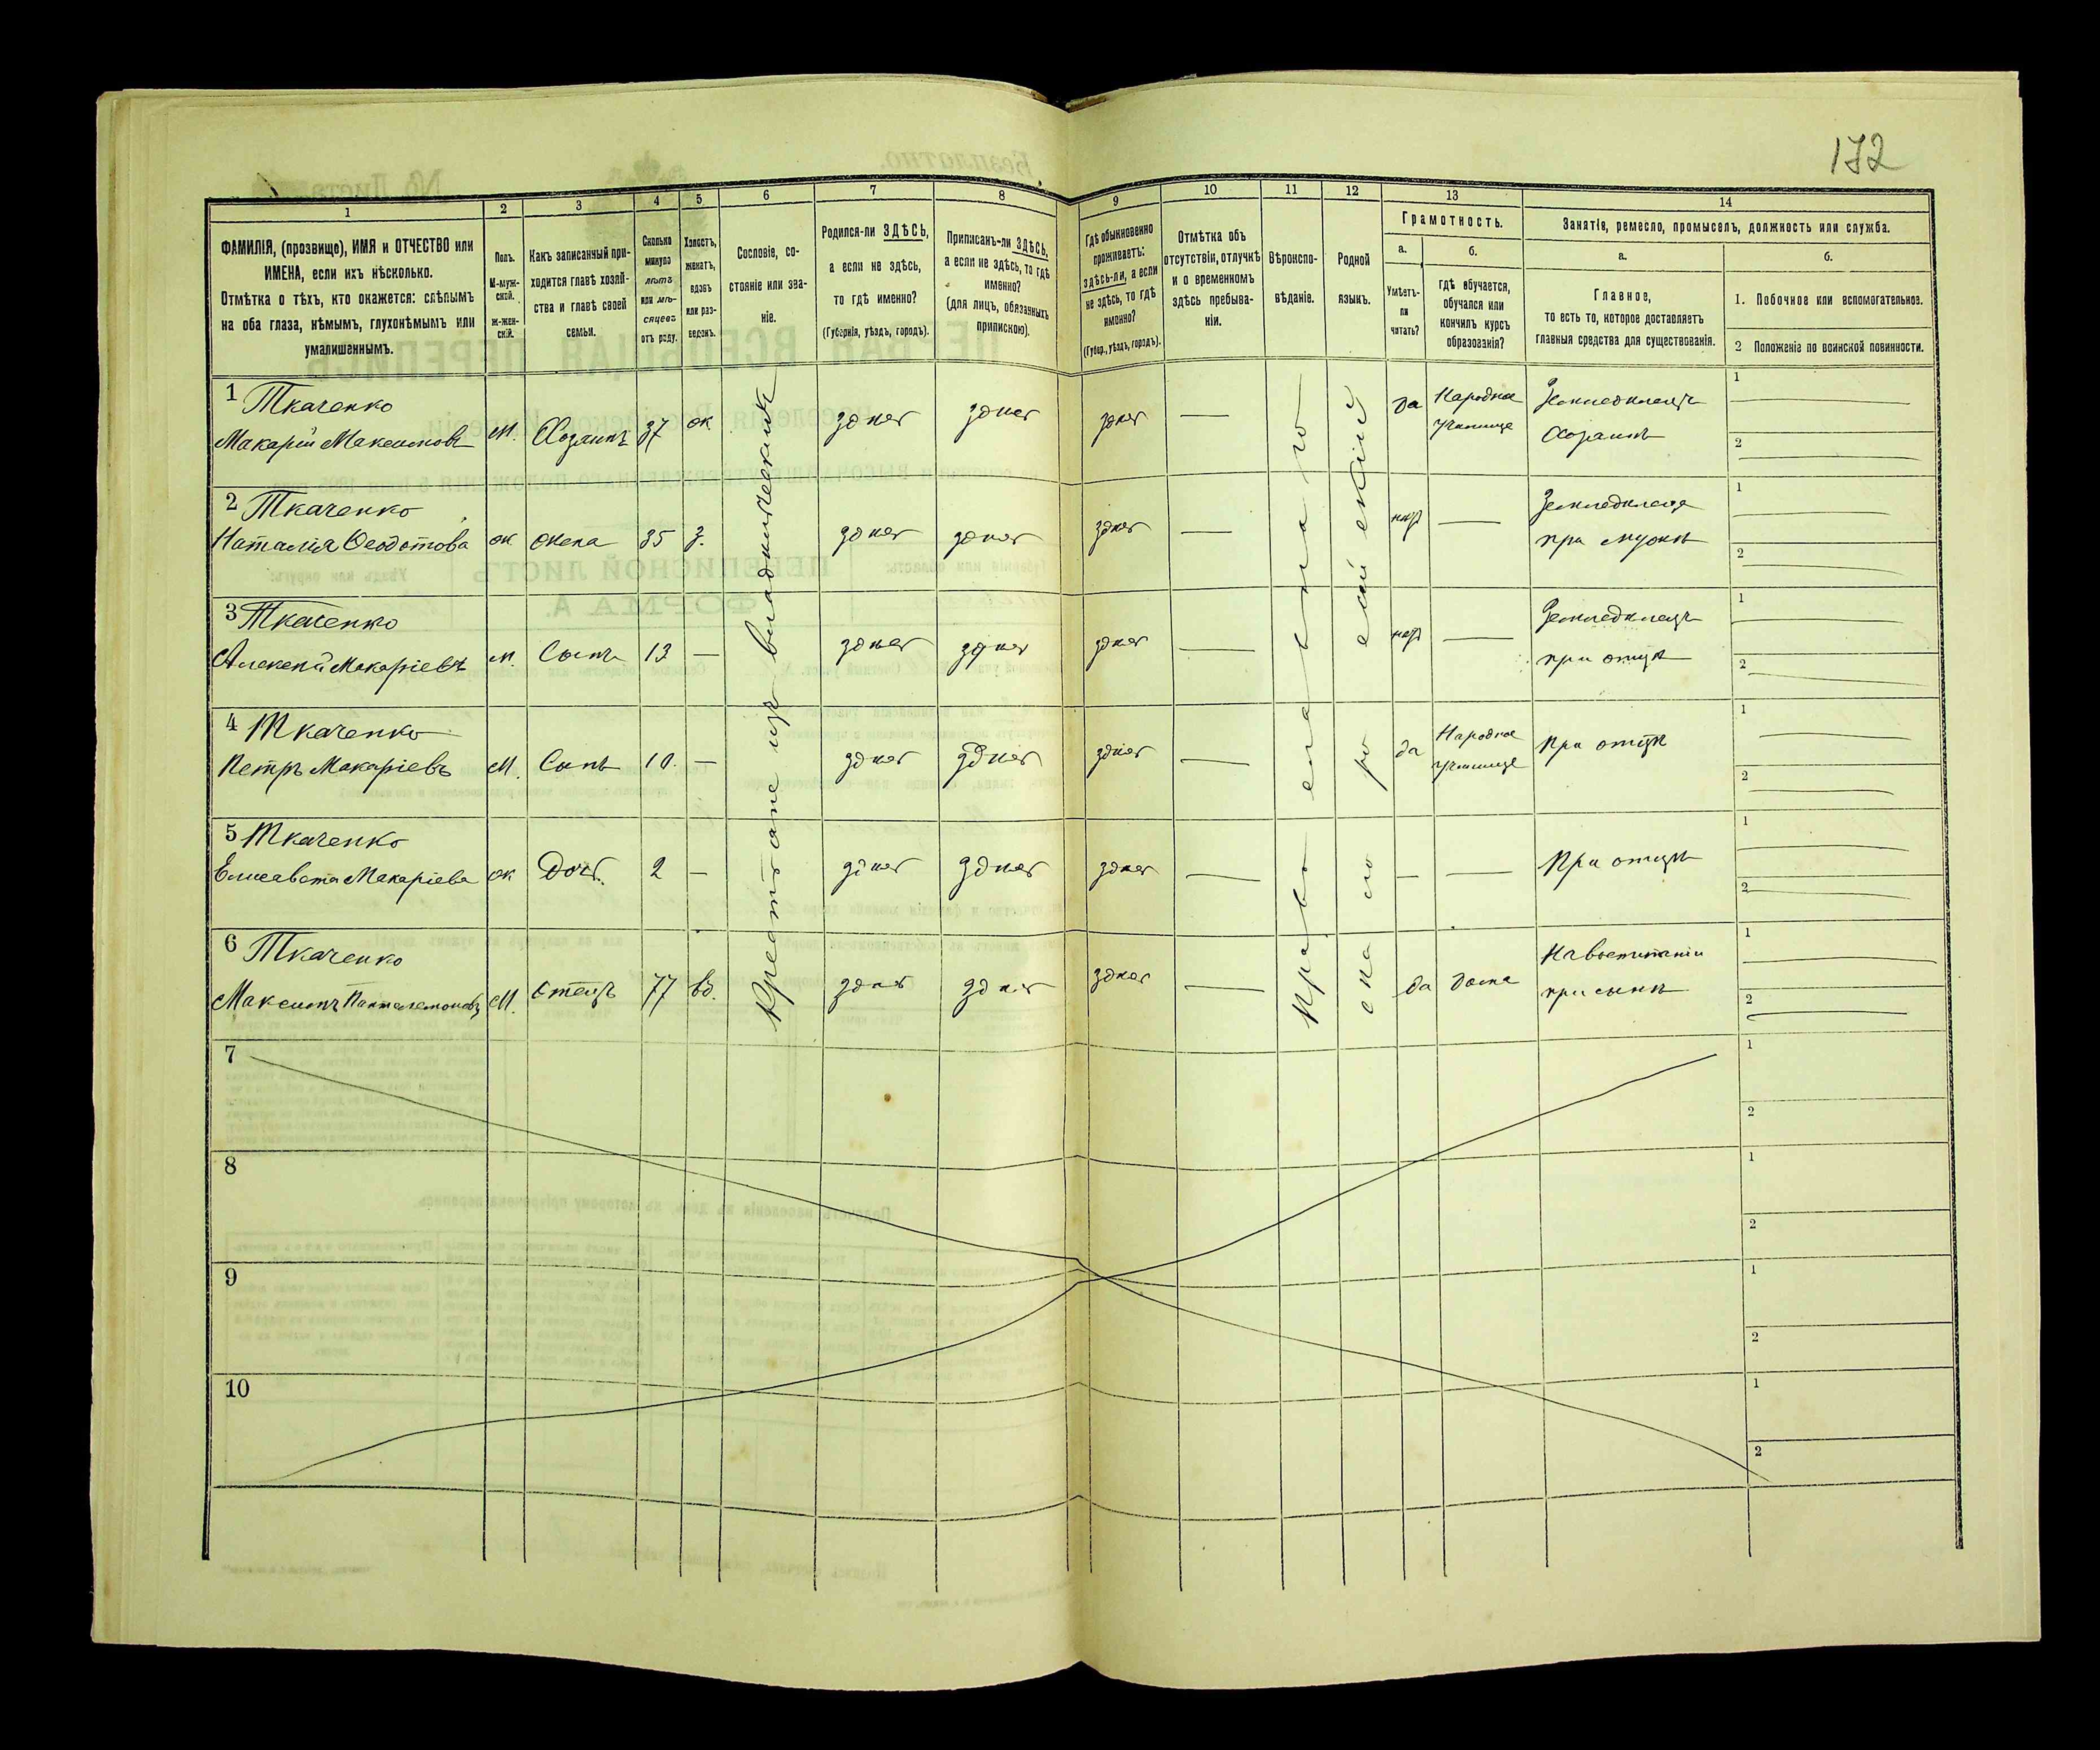 172
1 2 3 4 5 6 7 8 9 10 11 12 13 14
ФАМИЛІЯ, (прозвище), ИМЯ и ОТЧЕСТВО или
ИМЕНА, если ихъ нѣсколько.
Отмѣтка о тѣхъ, кто окажется: слѣпымъ
на оба глаза, нѣмымъ, глухонѣмымъ или
умалишеннымъ.
Полъ.
М-муж-
ской.
Ж-жен-
скій.
Какъ записанный при-
ходится главѣ хозяй-
ства и главѣ своей
семьи.
Сколько
минуло
лѣтъ
или мѣ-
сяцевъ
отъ роду.
Холостъ,
женатъ,
вдовъ
или раз-
веденъ.
Сословіе, со-
стояніе или зва-
ніе.
Родился-ли ЗДѢСЬ,
а если не здѣсь,
то гдѣ именно?
(Губернія, уѣздъ, городъ).
Приписанъ-ли ЗДѢСЬ,
а если не здѣсь, то гдѣ
именно?
(для лицъ, обязанныхъ
припискою).
Гдѣ обыкновенно
проживаетъ:
здѣсь-ли, а если
не здѣсь, то гдѣ
именно?
(Губер., уѣздъ, городъ).
Отмѣтка объ
отсутствіи, отлучкѣ
и о временномъ
здѣсь пребыва-
ніи.
Вѣроиспо-
вѣданіе.
Родной
языкъ.
Грамотность.
а.
Умѣетъ-
ли
читать?
б.
гдѣ обучается,
обучался или
кончилъ курсъ
образованія?
Занятіе, ремесло, промыселъ, должность или служба.
а.
Главное,
то есть то, которое доставляетъ
главныя средства для существованія.
б.
1. Побочное или вспомогательное.
2 Положеніе по воинской повинности.
Крестьяне изъ владѣльческихъ
Православнаго
малороссійскій
1 Ткаченко
Макарій Максимовъ М. Хозяинъ 37 ж здѣсь здѣсь здѣсь — да Народное
училище
Земледѣлецъ
Хозяинъ
1
2
2 Ткаченко
Наталія Ѳеодотова ж жена 35 з. здѣсь здѣсь здѣсь — нѣтъ —
Земледѣлица
при мужѣ
1
2
3 Ткаченко
Алексѣй Макаріевъ м. Сынъ 13 — здѣсь здѣсь здѣсь — нѣтъ —
Земледѣлецъ
при отцѣ
1
2
4 Ткаченко
Петръ Макаріевъ М. Сынъ 10. — здѣсь здѣсь здѣсь — да Народное
училище
При отцѣ
1
2
5 Ткаченко
Елисавета Макаріева ж Дочь. 2 — здѣсь здѣсь здѣсь — — —
При отцѣ
1
2
6 Ткаченко
Максимъ Панталемоновъ М. Отецъ 77 вд. здѣсь здѣсь здѣсь — да дома
На воспитаніи
при сынѣ
1
2
7
1
2
8
1
2
9
1
2
10
1
2